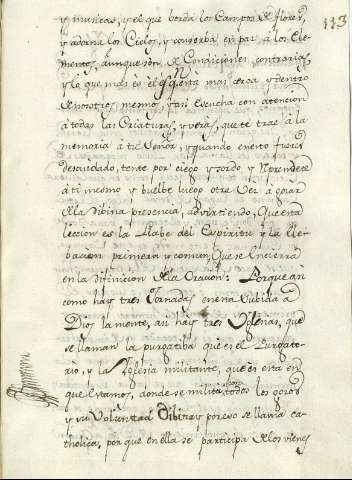 113
y muneas, y el que borda los Campos de flores,
y adorna los Cielos, y conserba en paz á los Ele-
mentos, aunque son de Condiciones contrarias
y lo que mas es el q. esta mas cerca y dentro
de nosotros mesmos, y asi escucha con atencion
á todas las Criaturas, y veras, que te traen á la
memoria á tu Señor, y quando en esto fueres
descuidado, tente por ciego y sordo y Reprendete
á ti mesmo y buelbe luego otra Vez á gozar
de la dibina presencia, advirtiendo, Que esta
leccion es la Llabe del Espiritu y la Ele-
bacion primera y comun, Que se encierra
en la difinicion de la Oracion: Porque an
como hay tres Jornadas en esta subida a
Dios la mente, asi hay tres Yglesias, que
se llaman la purgatiba que es el Purgato-
rio, y la Yglesia militante, que es esta en
que Estamos, donde se milita por todos los gozos
y su Voluntad dibina, y por eso se llama ca-
tholica, por que en ella se participa de los vienes